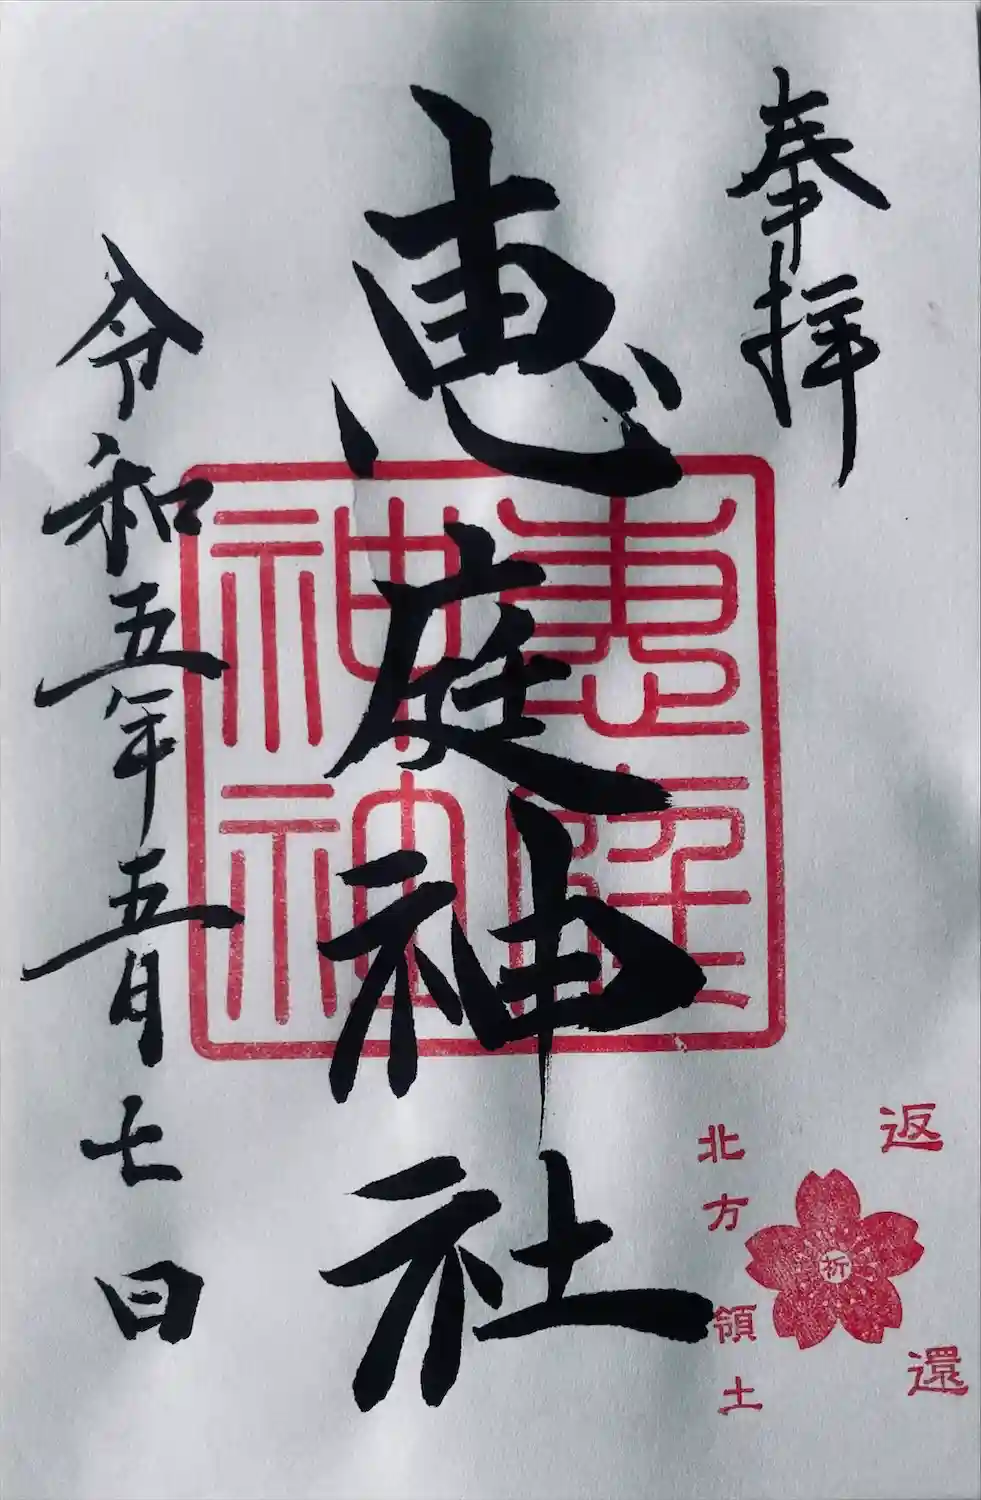 奉拝
恵庭神社
恵庭神社
令和五年五月七日
北方領土
返還
祈